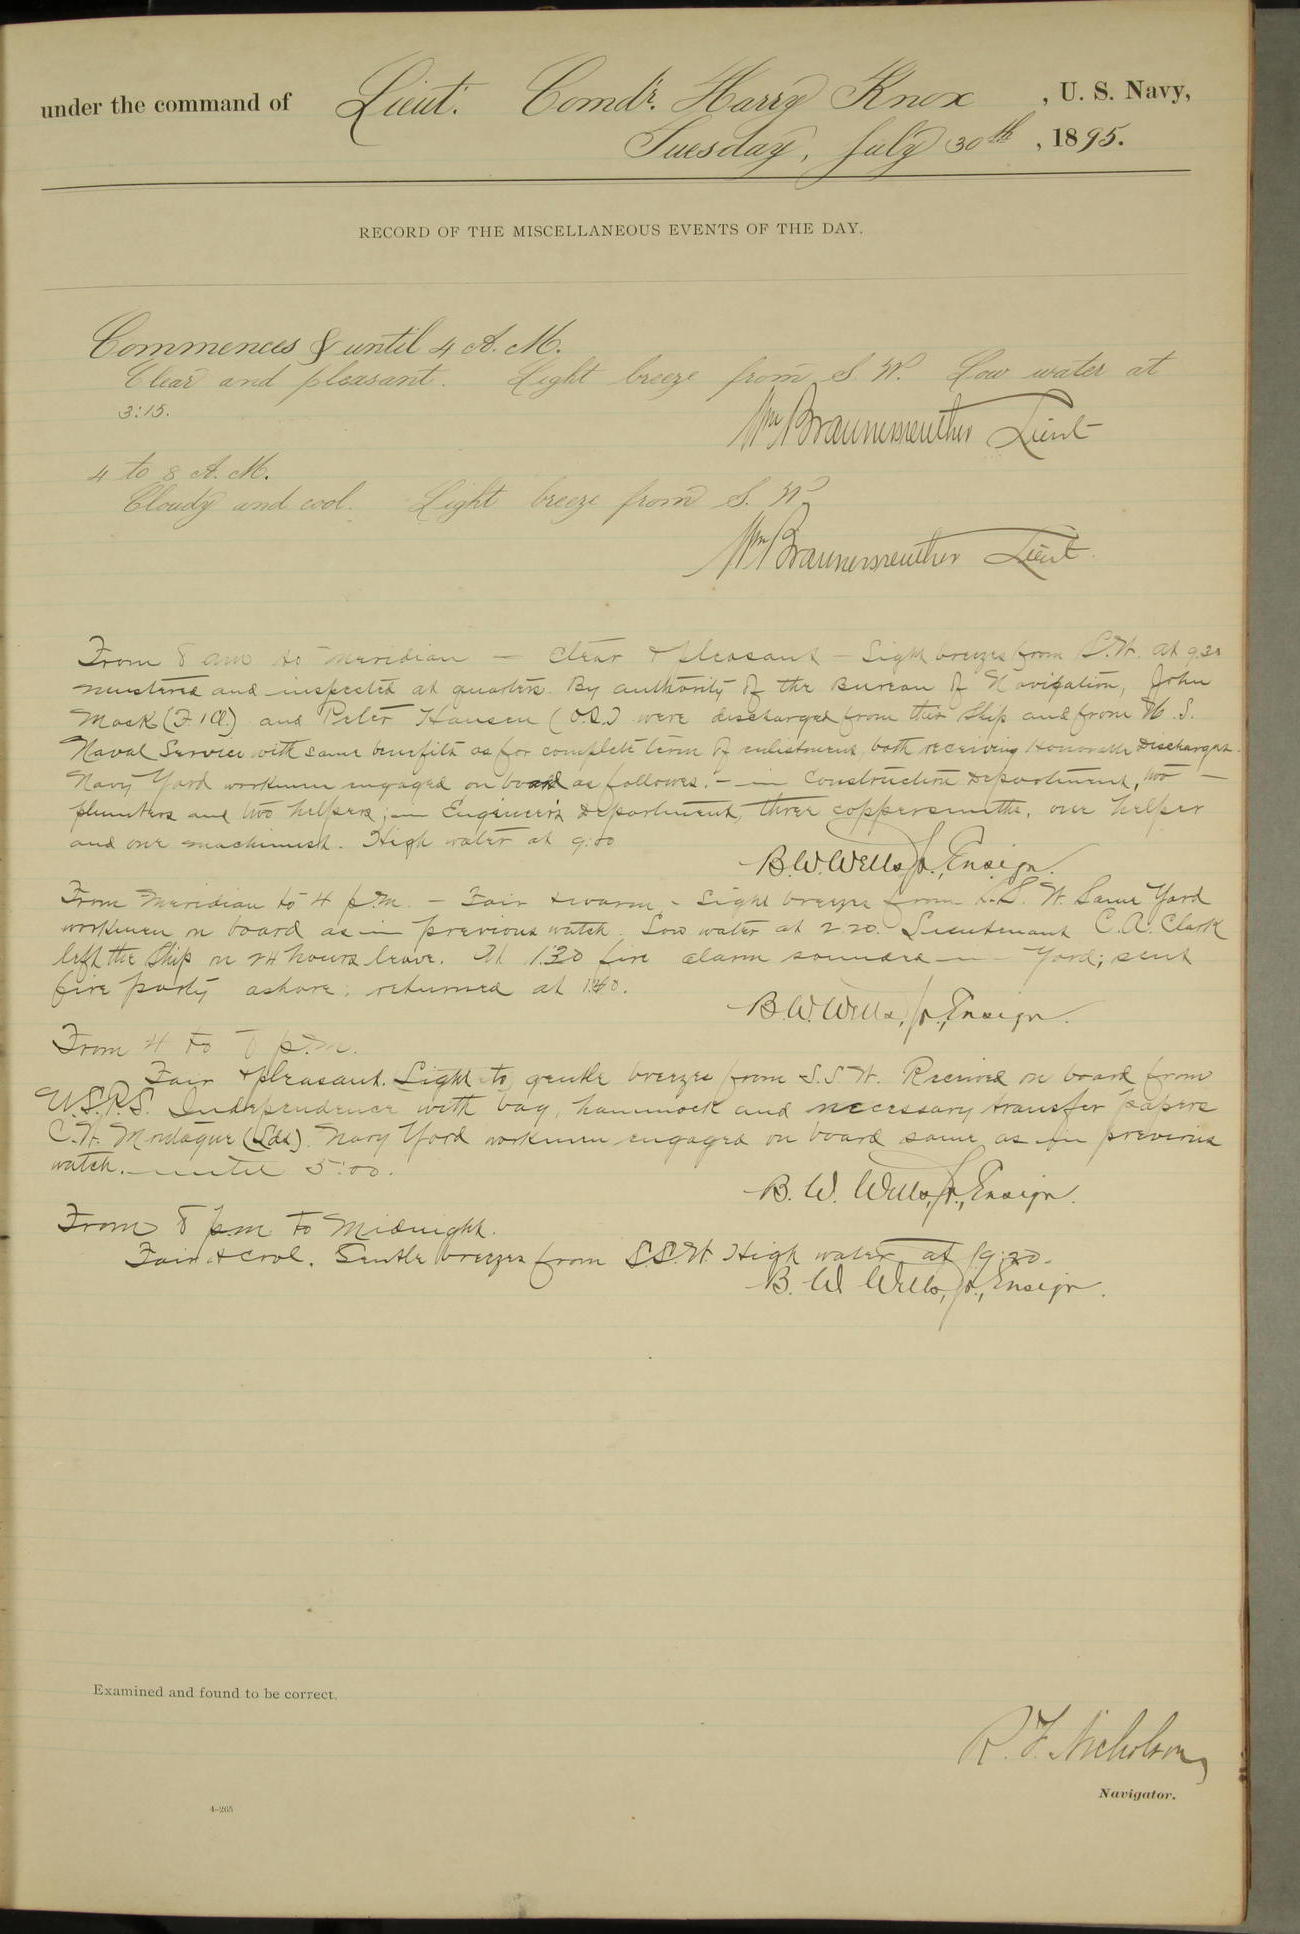 under the command of Lieut. Comdr. Harry Knox, U. S. Navy,
Tuesday, July 30th, 1895.
RECORD OF THE MISCELLANEOUS EVENTS OF THE DAY.
Commences & until 4 A. M.
Clear and pleasant. Light breeze from S. W. Low water at
3:15.
Wm Braunersreuther Lieut
4 to 8 A. M.
Cloudy and cool. Light breeze from S. W.
Wm Braunersreuther Lieut.
From 8 am to meridian — Clear & pleasant — Light breezes from S.W. At 9:30
mustered and inspected at quarters. By authority of the Bureau of Navigation, John
Mack (F. 1Cl.) and Peter Hansen (O.S.) were discharged from this Ship and from U. S.
Naval Service with same benefits as for complete term of enlistment, both receiving Honorable Discharges.
Navy Yard workmen engaged on board as follows: — in Construction Department, two
plumbers and two helpers; in Engineer's Department, three coppersmiths, one helper
and one machinist. High water at 9:00
B. W. Wells, Jr., Ensign.
From Meridian to 4 p.m. — Fair & warm - Light breeze from S.S.W. Same Yard
workmen on board as in previous watch. Low water at 2:20. Lieutenant C. A. Clark
left the Ship on 24 hours leave. At 1:30 fire alarm sounded in Yard; sent
fire party ashore; returned at 1:40.
B. W. Wells, Jr., Ensign.
From 4 to 8 p.m.
Fair & pleasant. Light to gentle breezes from S.S.W. Received on board from
U.S.R.S. Independence with bag, hammock and necessary transfer papers
C. W. Montague (Lds). Navy Yard workmen engaged on board same as in previous
watch. until 5:00.
B. W. Wells, Jr., Ensign.
From 8 pm to Midnight.
Fair & cool. Gentle breezes from S.S.W. High water at 9:20.
B. W. Wells, Jr., Ensign.
Examined and found to be correct.
R. F. Nicholson,
Navigator.
4-265